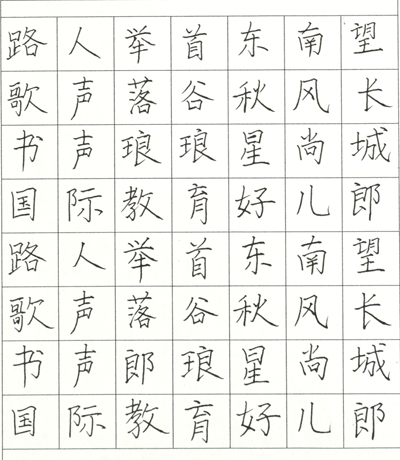 路人举首东南望
歌声落谷秋风长
书声琅琅星尚城
国际教育好儿郎
路人举首东南望
歌声落谷秋风长
书声郎琅星尚城
国际教育好儿郎